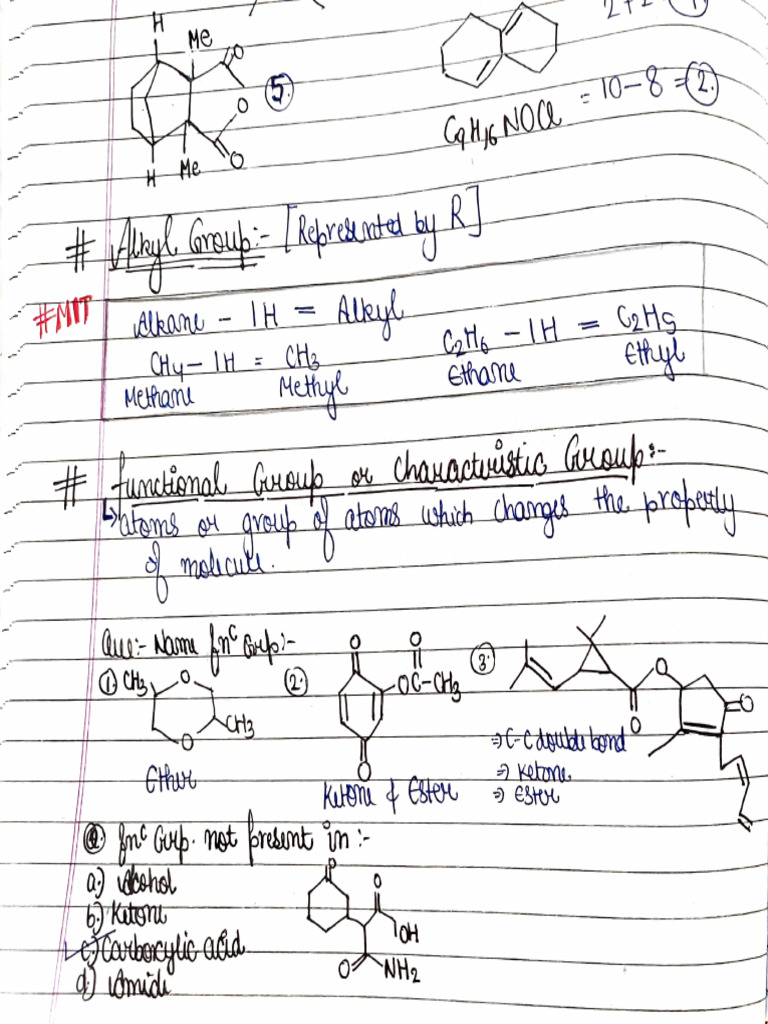 H
Me
O
O
O
5.
Me
H
C9H16NOCl = 10-8 = 2.
# Alkyl Group:- [Represented by R]
#MIT
Alkane - 1H = Alkyl
CH4 - 1H = CH3
Methane Methyl
C2H6 - 1H = C2H5
Ethane Ethyl
# Functional Group or Characteristic Group:-
↳ atoms or group of atoms which changes the property
of molecule.
Que:- Name fnc Grp:-
1. CH3 O O CH3
Ether
2. O O OC-CH3 O
Ketone & Ester
3. O O O
⇒ C-C double bond
⇒ Ketone
⇒ Ester
Q fnc Grp. not present in:-
a.) Alcohol
b.) Ketone
c.) Carboxylic acid
d.) Amide
O O OH
O NH2